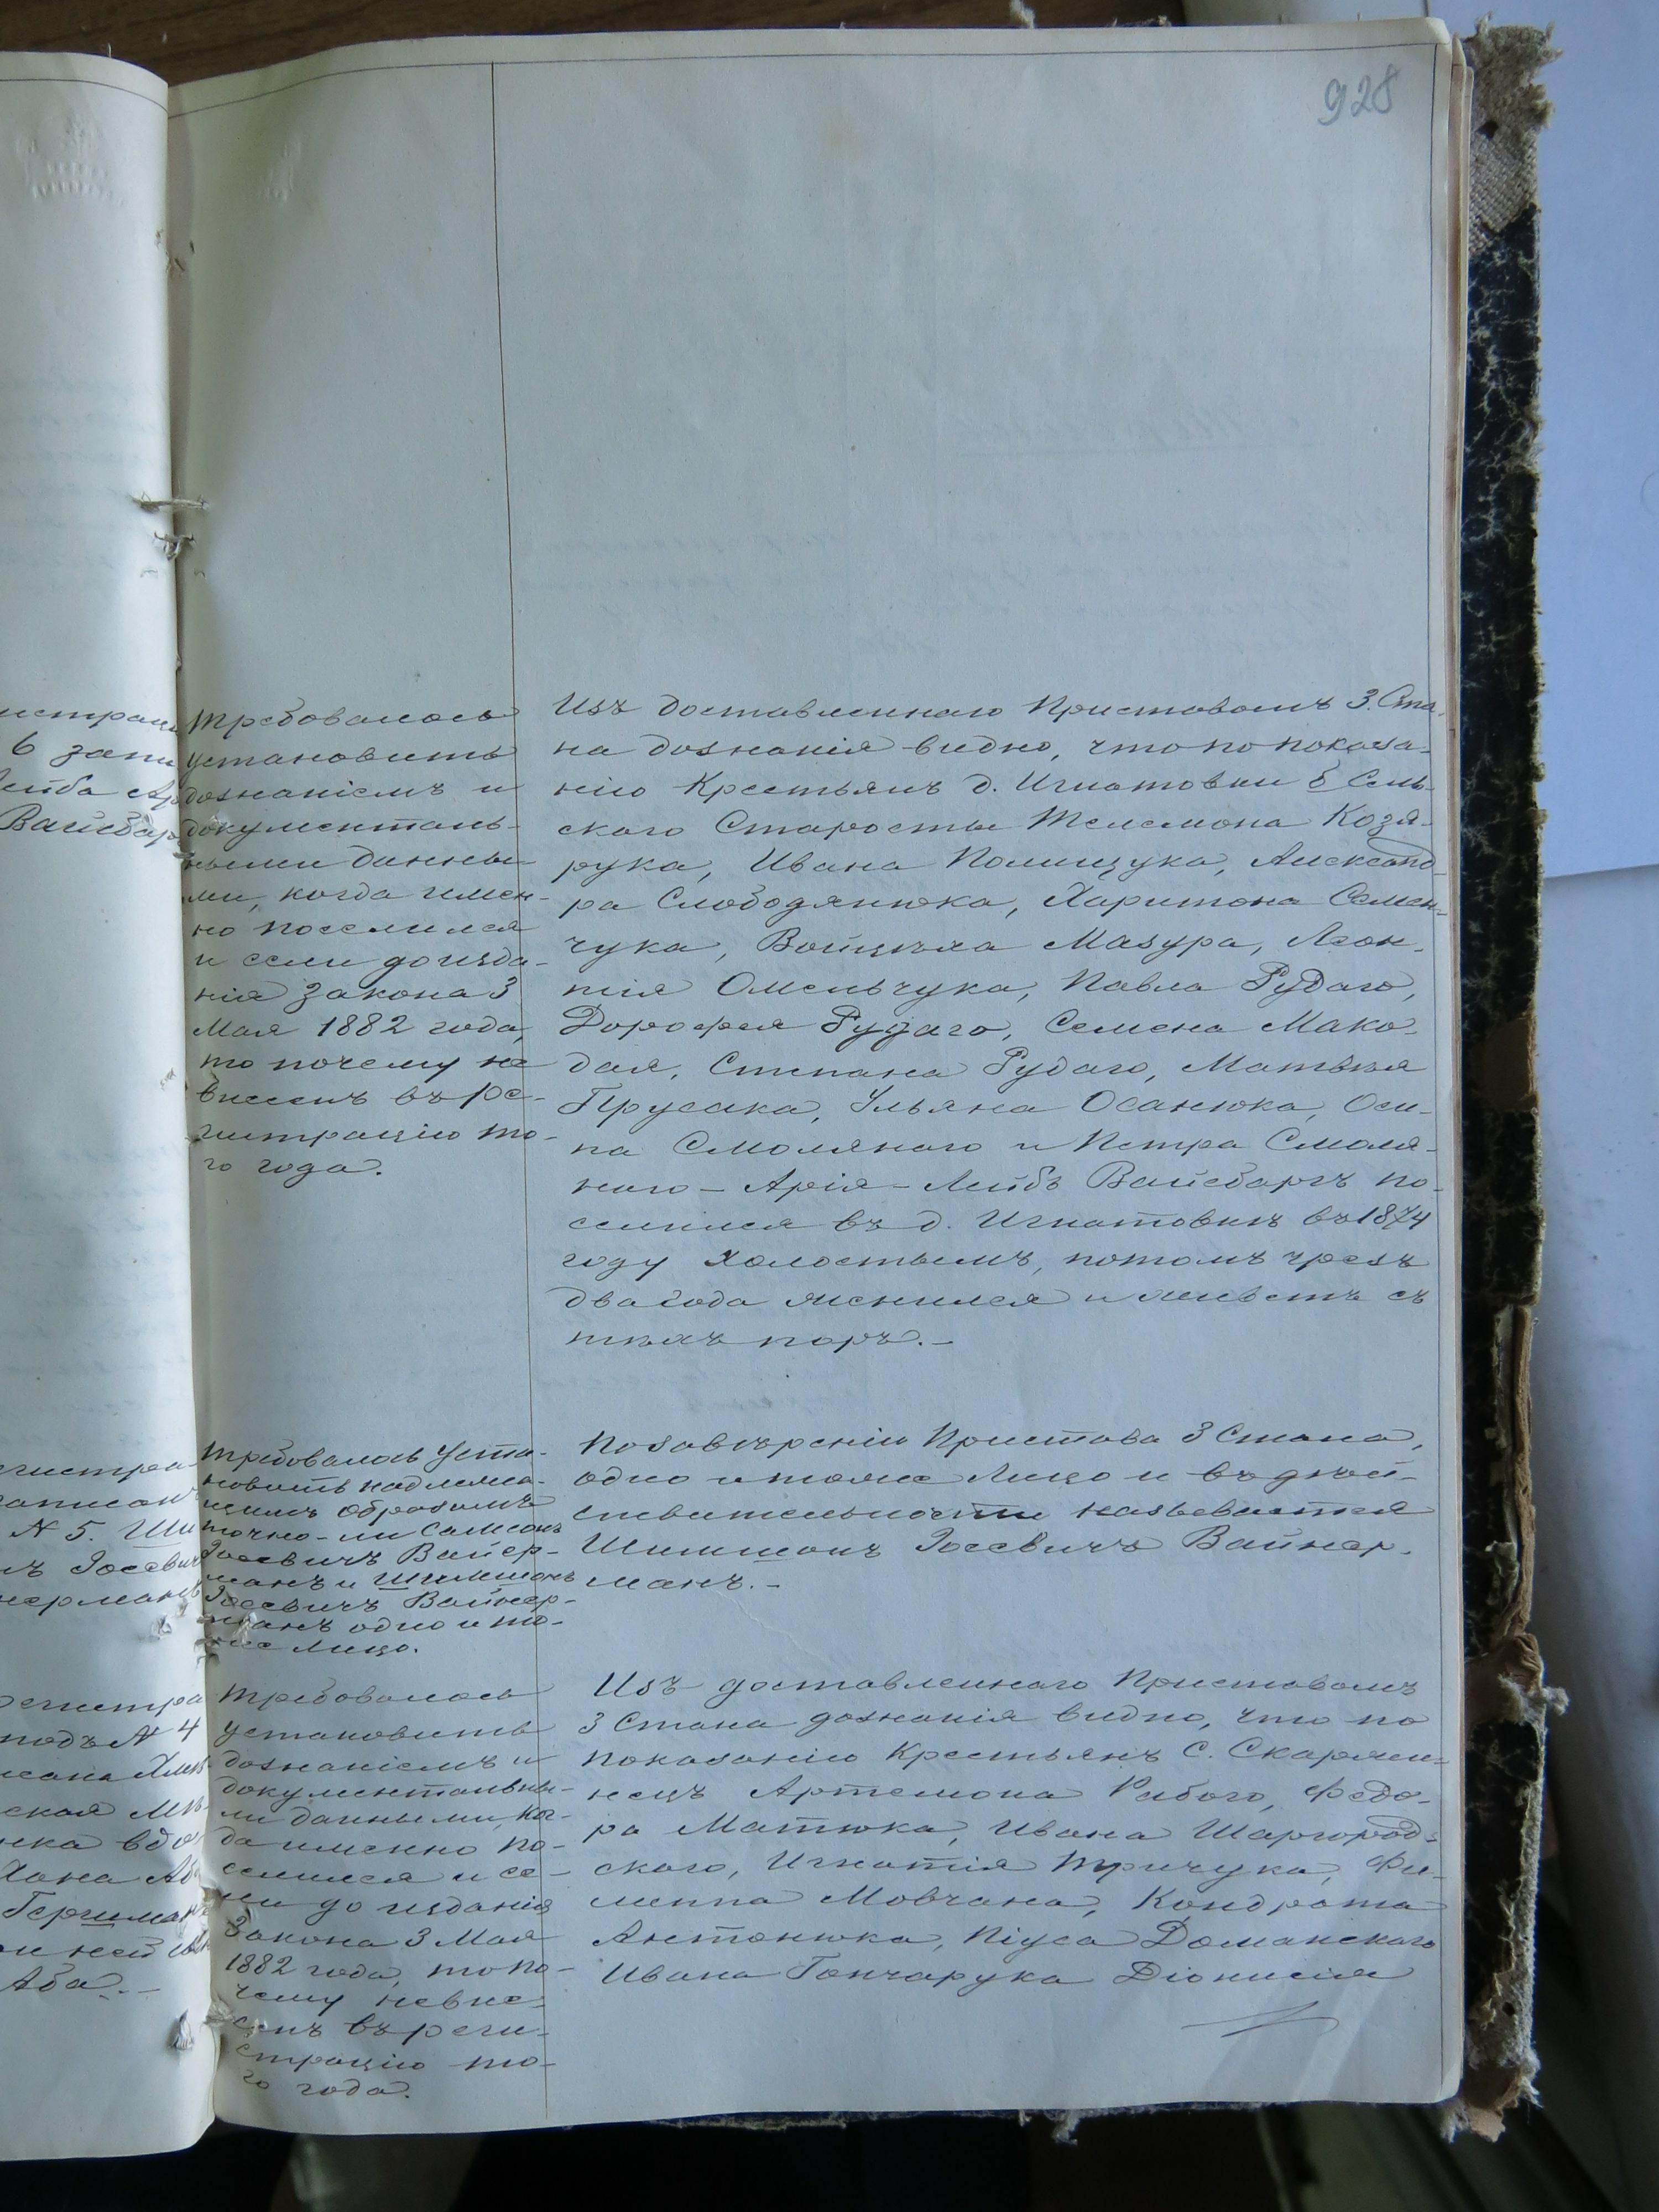 928
истрац
6 запи
Лейба Ар
Вайсбар
Требовалось
установить
дознаніемъ и
документаль-
ными данны-
ми, когда имен-
но поселился
и если до изда-
нія закона 3
Мая 1882 года,
то почему не
внесенъ въ ре-
гистрацію то-
го года.
Изъ доставленнаго Приставомъ 3. Ста-
на дознанія видно, что по показа-
нію Крестьянъ д. Игнатовки б. Сель-
скаго Старосты Телемона Козя-
рука, Ивана Полищука, Александ-
ра Слободянюка, Харитона Семен-
чука, Войцѣха Мазура, Леон-
тія Омельчука, Павла Рудаго,
Дорофея Рудаго, Семена Мако-
дая, Степана Рудаго, Матвѣя
Прусака, Ульяна Осанюка, Оси-
па Смолянаго и Петра Смоля-
наго – Арія-Лейбъ Вайсбаргъ по-
селился въ д. Игнатовкѣ въ 1874
году холостымъ, потомъ чрезъ
два года женился и живетъ съ
тѣхъ поръ. –
егистра-
записан
№ 5. Ши
ъ Іосевич
нерманъ
Требовалось уста-
новить надлежа-
щимъ образомъ
точно-ли Самсонъ
Іосевичъ Вайер-
манъ и Шимшонъ
Іосевичъ Вайнер-
манъ одно и то-
же лицо.
По завѣренію Пристава 3 Стана,
одно и тоже лицо и въ дѣй-
ствительности называется
Шимшонъ Іосевичъ Вайнер-
манъ. –
регистра
подъ № 4
ская Мѣ
нка вдо
Хана Аб
Гершман
и ней
Аба. –
Требовалось
установить
дознаніемъ и
документальны-
ми данными, ког-
да именно по-
селился и ес-
ли до изданія
Закона 3 Мая
1882 года, то по-
чему не вне-
сенъ въ реги-
страцію то-
го года.
Изъ доставленнаго Приставомъ
3 Стана дознанія видно, что по
показанію Крестьянъ С. Скаржи-
нецъ Артемона Рабого, Федо-
ра Матюка, Ивана Шаргород-
скаго, Игнатія Тричука, Фи-
липпа Мовчана, Кондрата
Антонюка, Піуса Доманскаго
Ивана Гончарука Діонисія